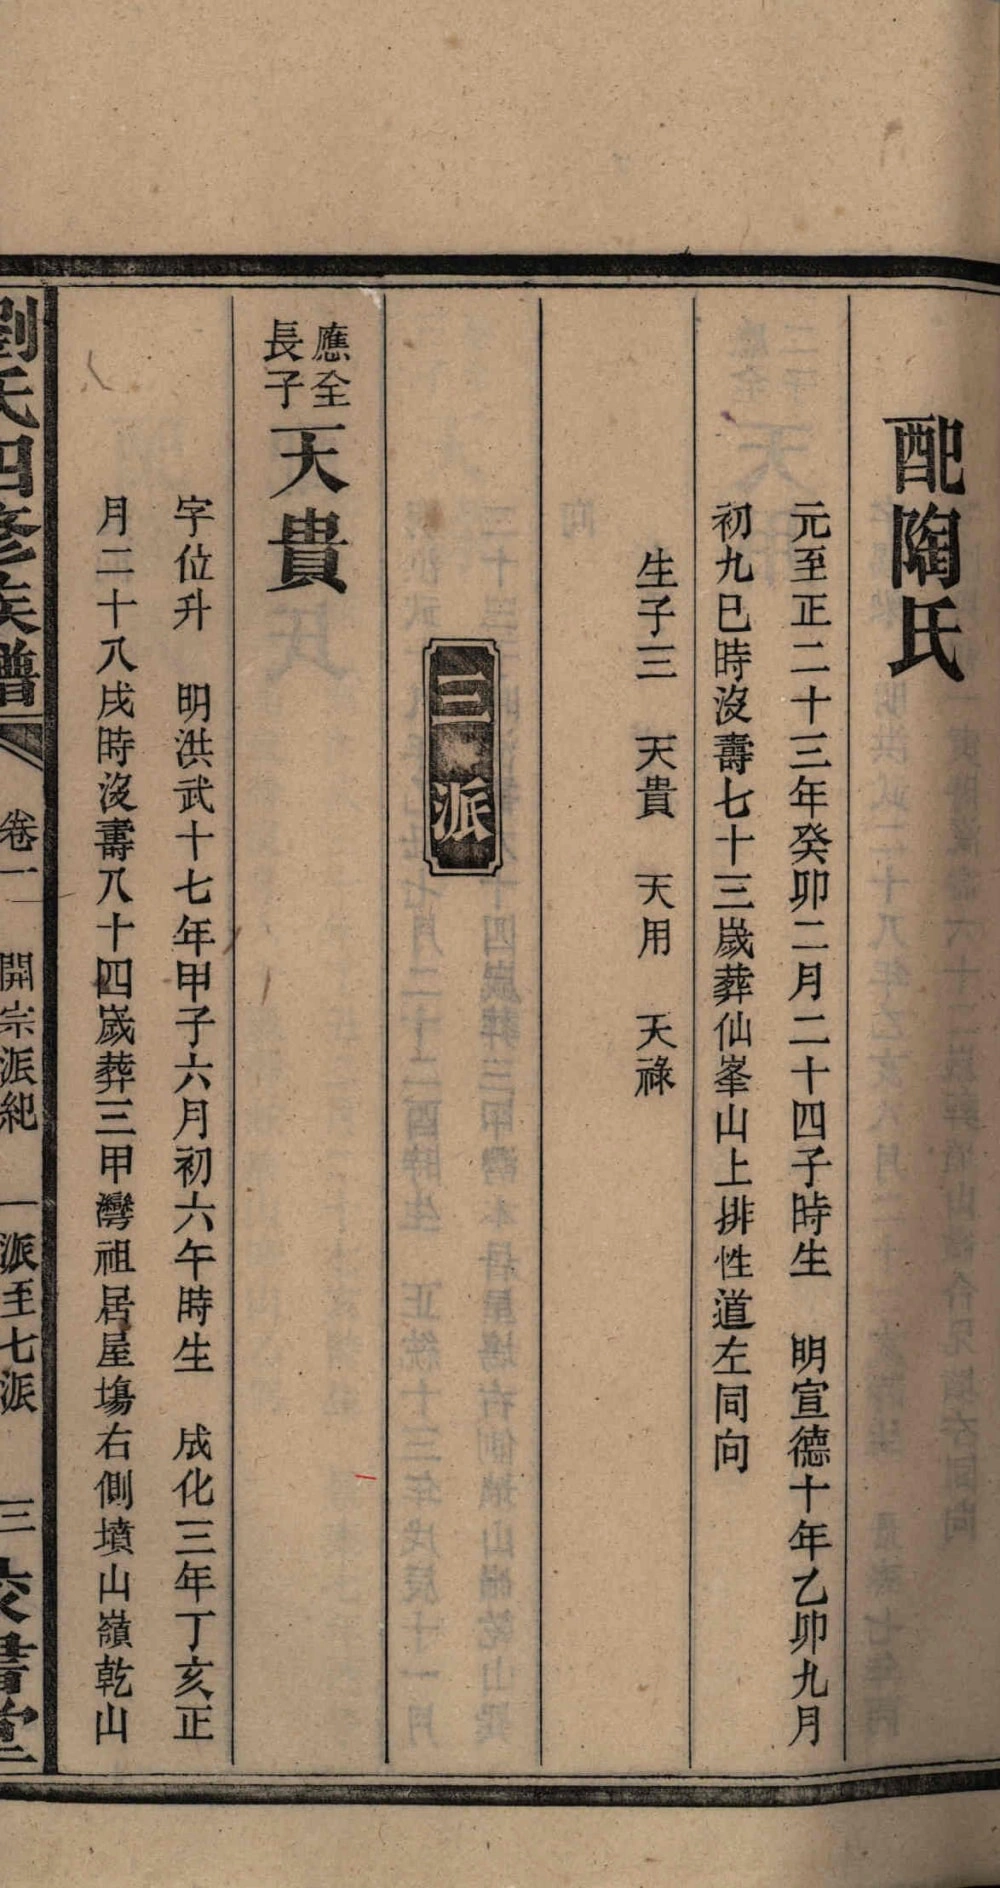 配陶氏
元至正二十三年癸卯二月二十四子時生　明宣德十年乙卯九月
初九巳時沒壽七十三歲葬仙峯山上排性道左同向
生子三　天貴　天用　天祿
三派
應全
長子
天貴
字位升　明洪武十七年甲子六月初六午時生　成化三年丁亥正
月二十八戌時沒壽八十四歲葬三甲灣祖居屋塲右側墳山嶺乾山
劉氏四修族譜　卷一　開宗派紀　一派至七派　三　校書堂